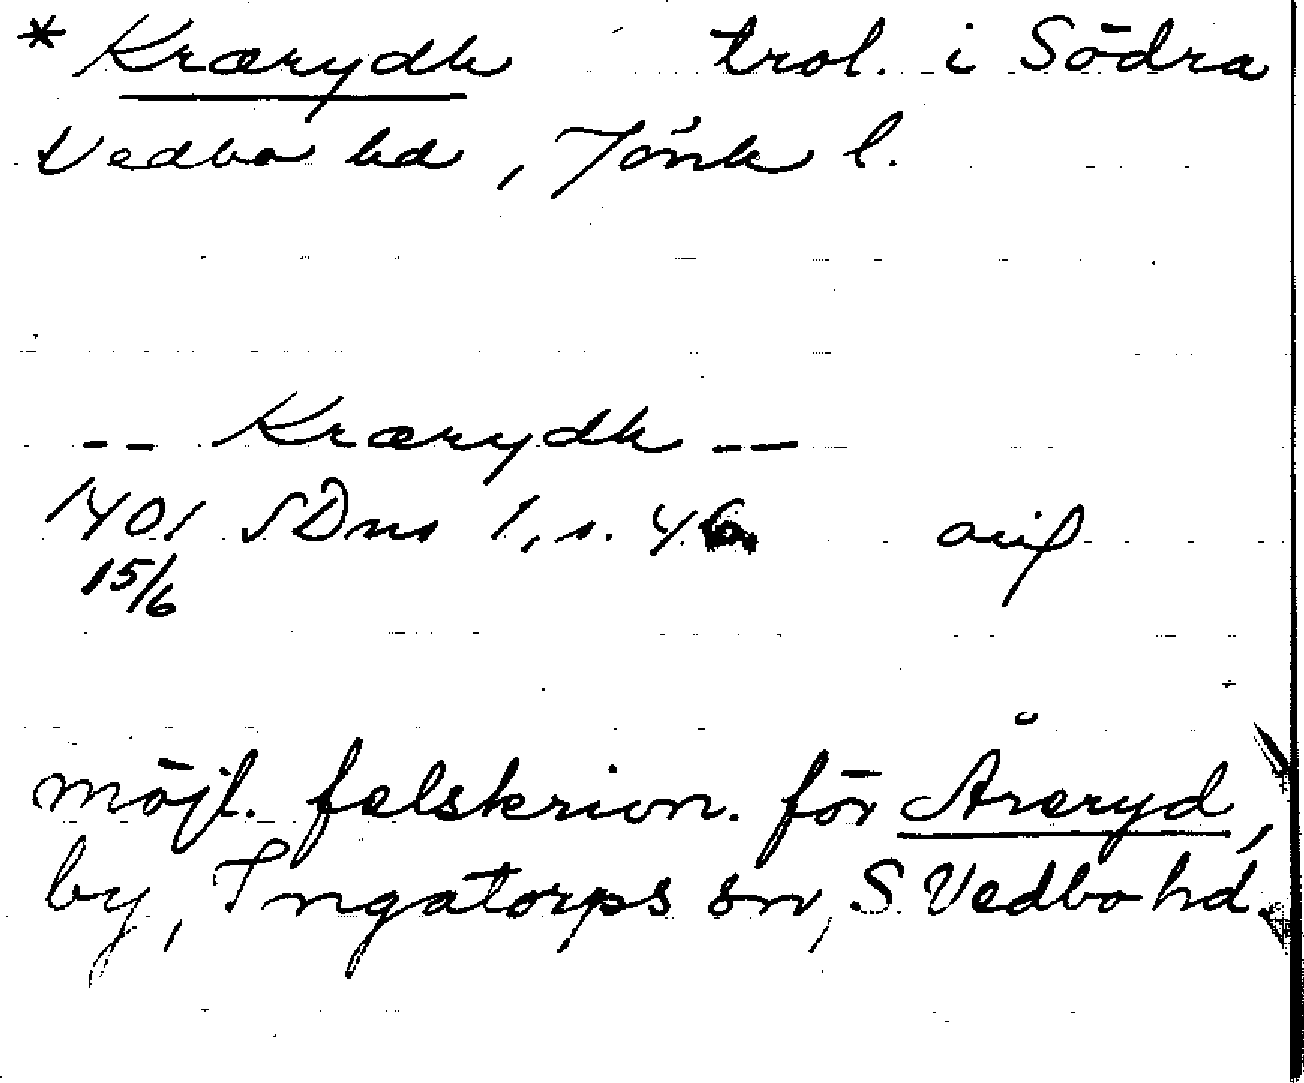 * Krærydh trol. i Södra
Vedbo hd, Jönk l.
-- Krærydh --
1401 SDns 1, s. 46 avif
15/6
möjl. felskrivn. för Åreryd,
by, Ingatorps sn, S Vedbo hd.